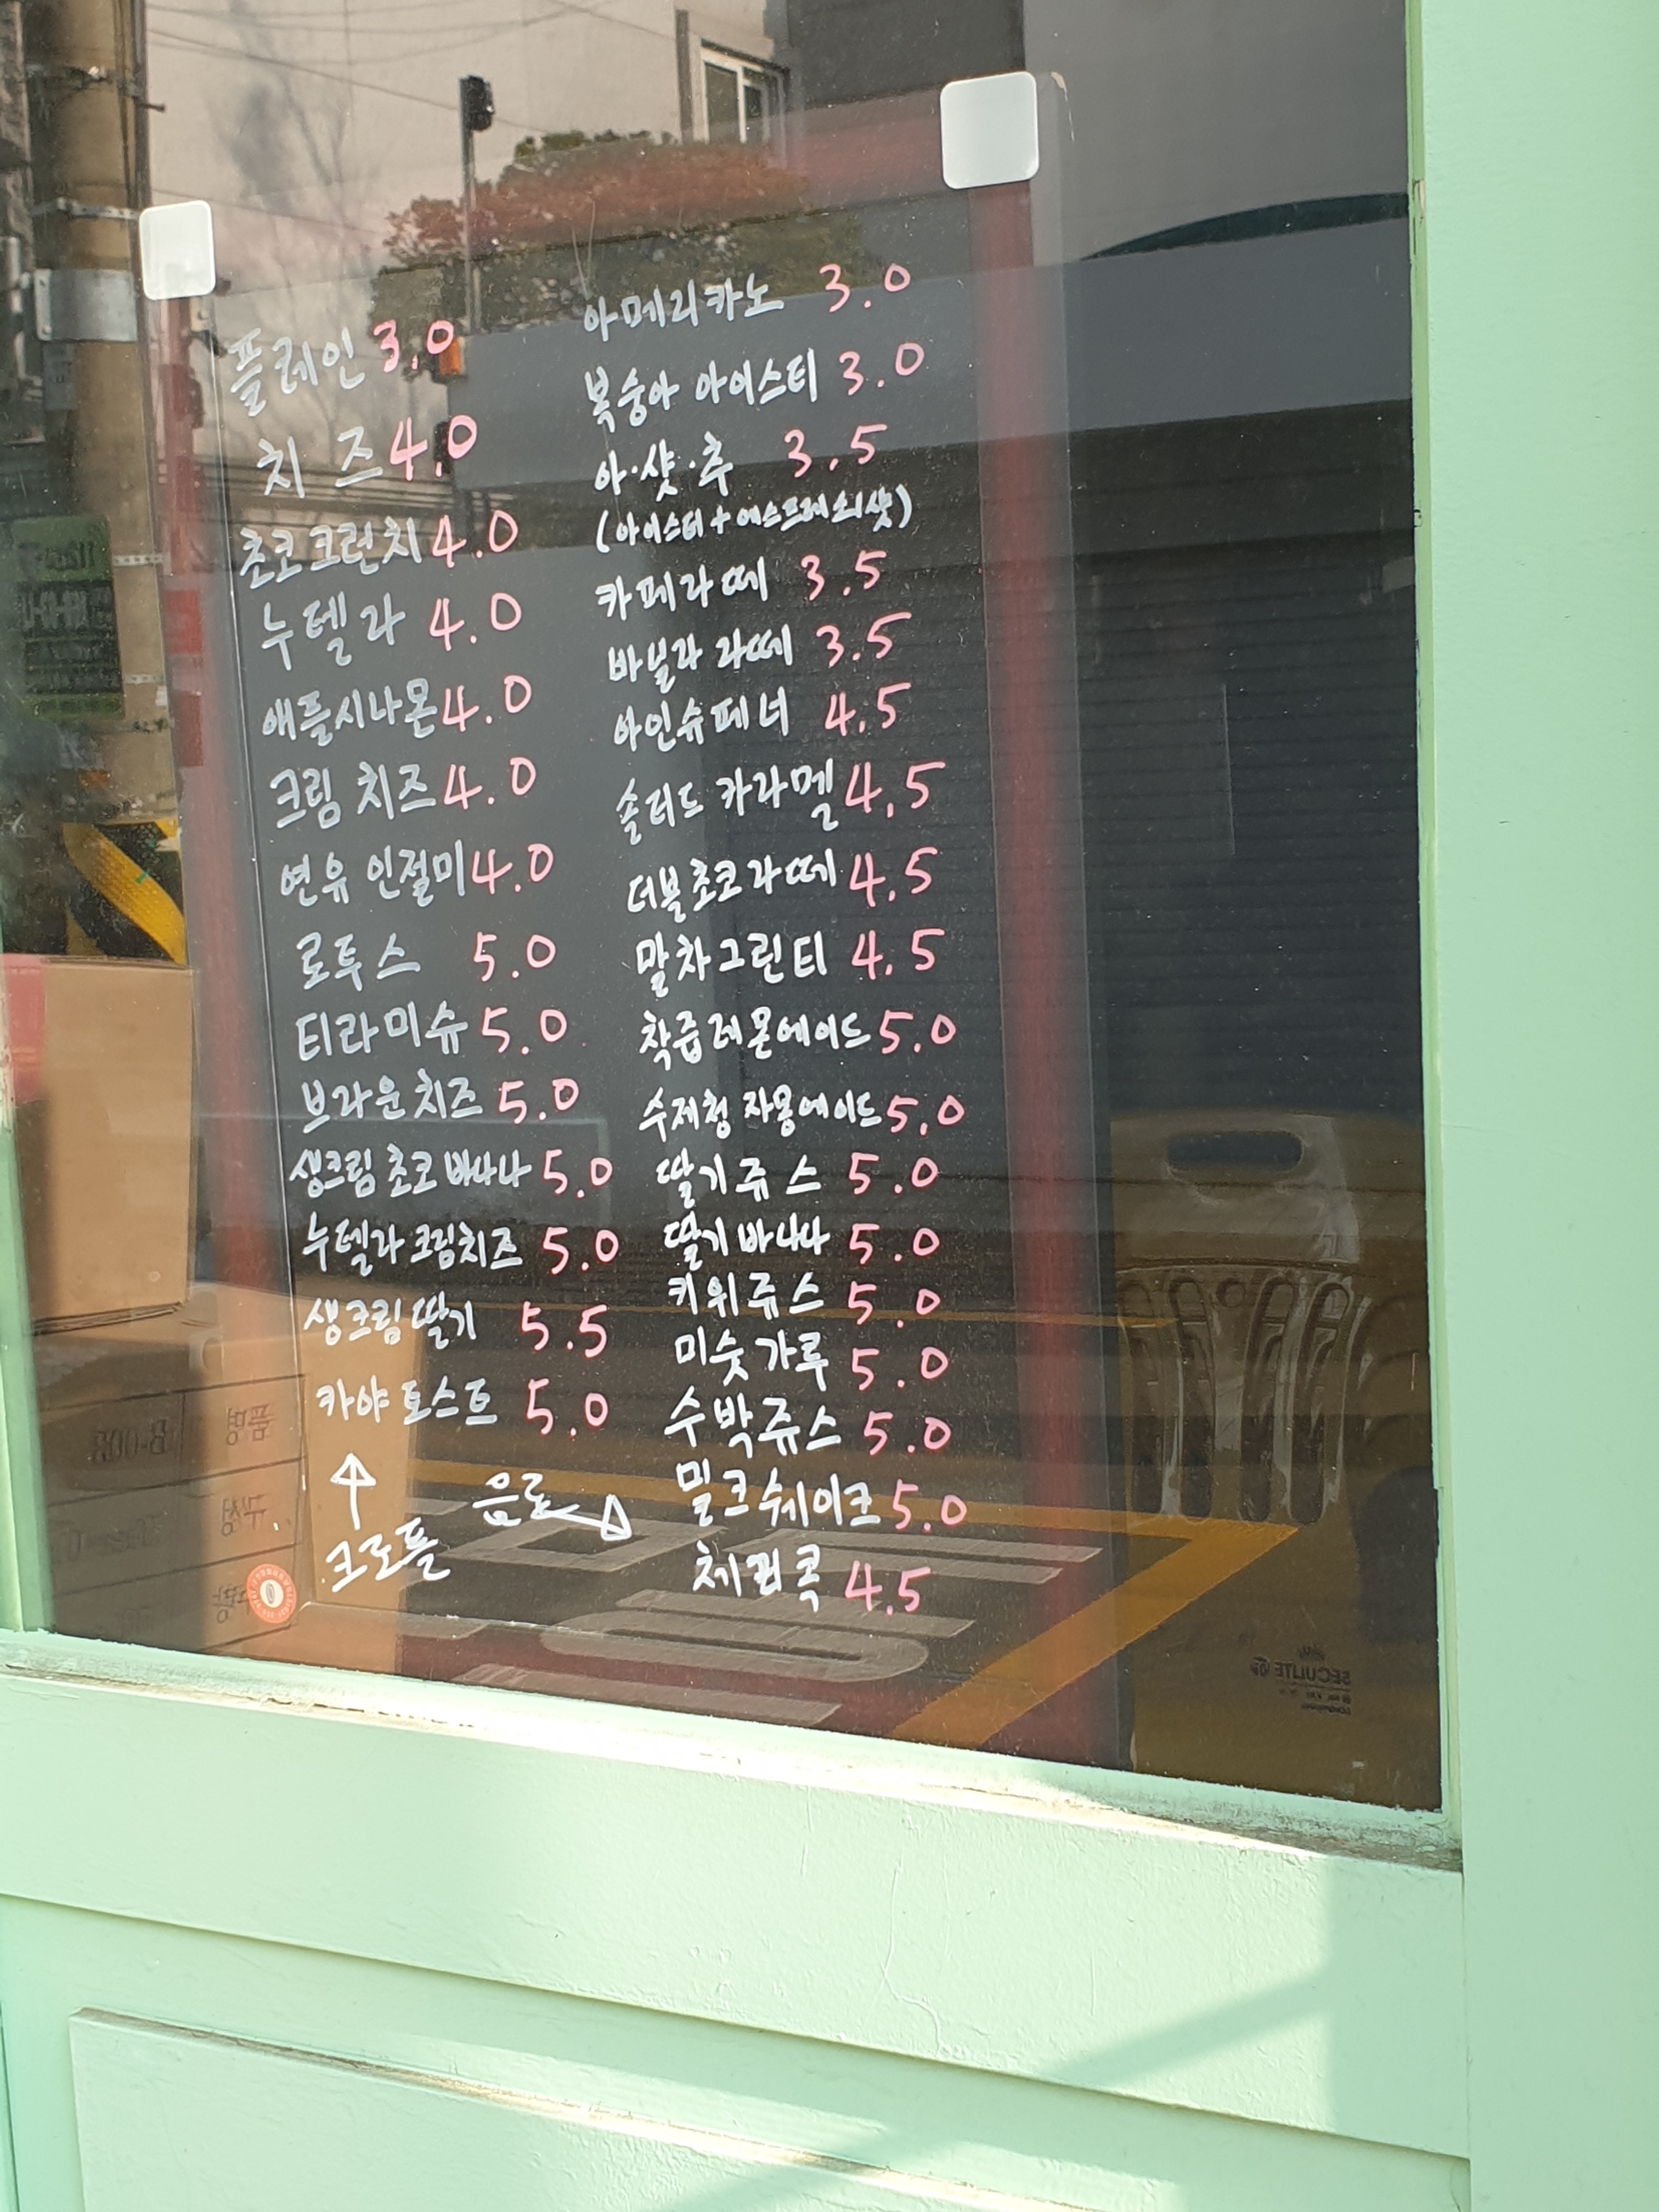 플레인 3.0
치즈 4.0
초코크런치 4.0
누텔라 4.0
애플시나몬 4.0
크림 치즈 4.0
연유 인절미 4.0
로투스 5.0
티라미슈 5.0
브라운치즈 5.0
생크림 초코 바나나 5.0
누텔라 크림치즈 5.0
생크림 딸기 5.5
카야 토스트 5.0
↑
크로플
음료→
아메리카노 3.0
복숭아 아이스티 3.0
아·샷·추 3.5
(아이스티+에스프레소1샷)
카페라떼 3.5
바닐라 라떼 3.5
아인슈페너 4.5
솔티드 카라멜 4.5
더블초코라떼 4.5
말차그린티 4.5
착즙레몬에이드 5.0
수제청 자몽에이드 5.0
딸기쥬스 5.0
딸기바나나 5.0
키위쥬스 5.0
미숫가루 5.0
수박쥬스 5.0
밀크쉐이크 5.0
체리콕 4.5
SECULITE